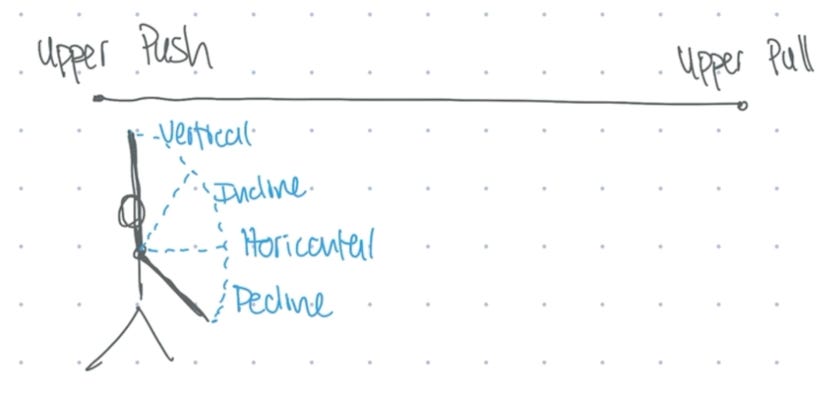 Upper Push
Upper Pull
Vertical
Incline
Horicontal
Decline